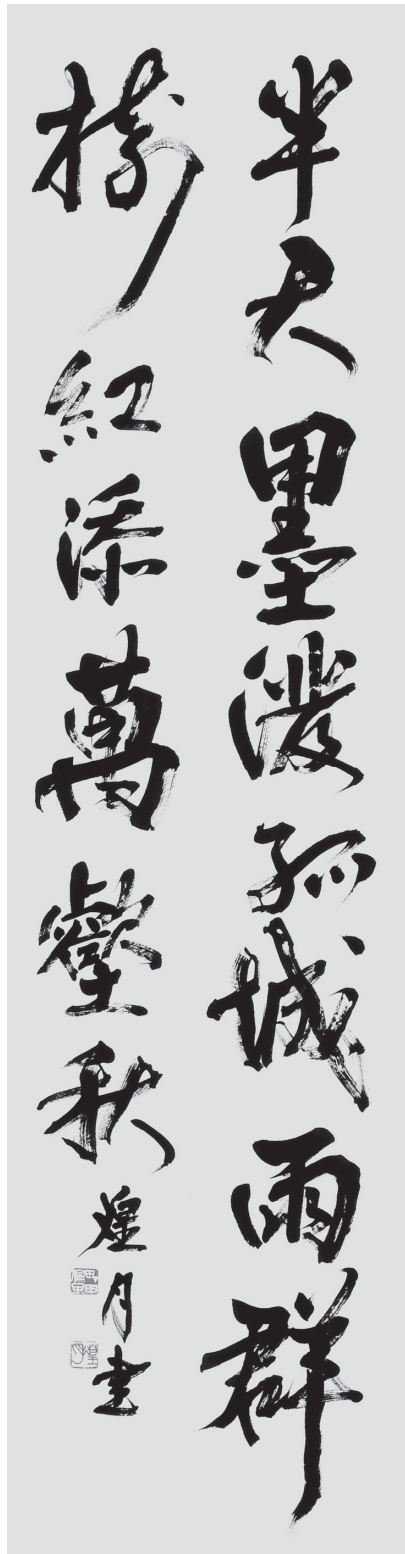 半天墨潑孤城雨群
樹紅添萬壑秋
煌月書